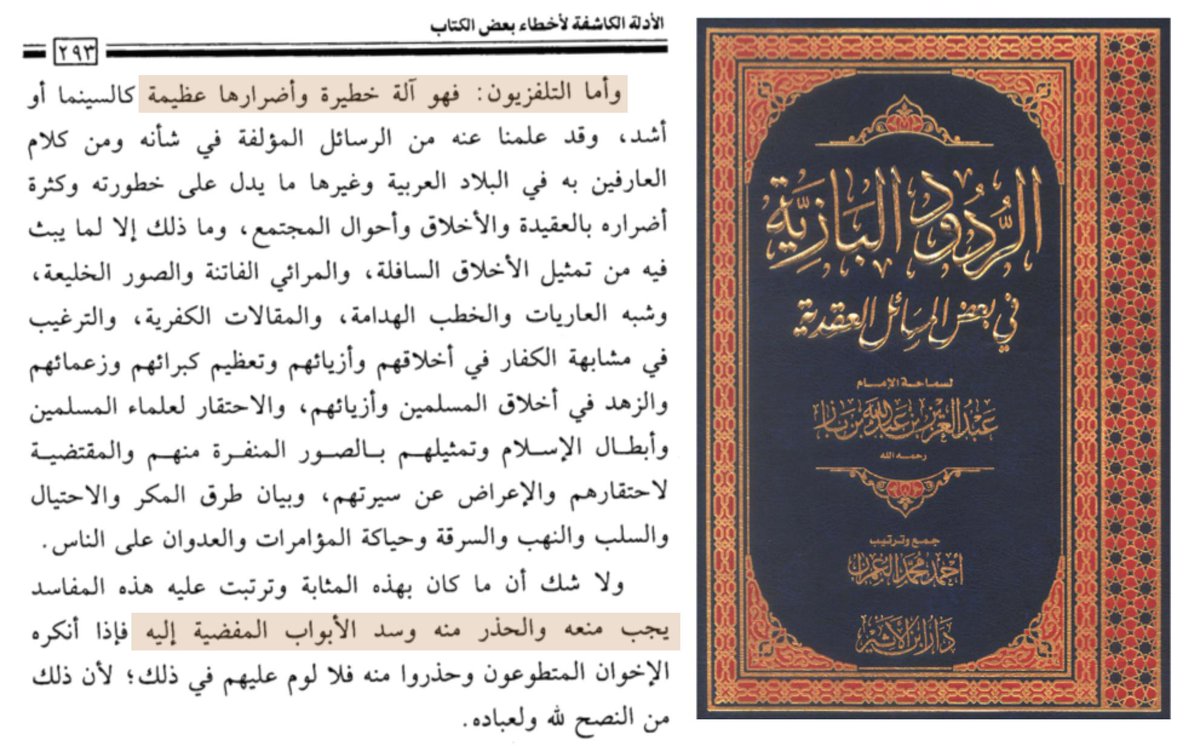 الأدلة الكاشفة لأخطاء بعض الكتاب
٢٩٣
وأما التلفزيون: فهو آلة خطيرة وأضرارها عظيمة كالسينما أو
أشد، وقد علمنا عنه من الرسائل المؤلفة في شأنه ومن كلام
العارفين به في البلاد العربية وغيرها ما يدل على خطورته وكثرة
أضراره بالعقيدة والأخلاق وأحوال المجتمع، وما ذلك إلا لما يبث
فيه من تمثيل الأخلاق السافلة، والمرائي الفاتنة والصور الخليعة،
وشبه العاريات والخطب الهدامة، والمقالات الكفرية، والترغيب
في مشابهة الكفار في أخلاقهم وأزيائهم وتعظيم كبرائهم وزعمائهم
والزهد في أخلاق المسلمين وأزيائهم، والاحتقار لعلماء المسلمين
وأبطال الإسلام وتمثيلهم بالصور المنفرة منهم والمقتضية
لاحتقارهم والإعراض عن سيرتهم، وبيان طرق المكر والاحتيال
والسلب والنهب والسرقة وحياكة المؤامرات والعدوان على الناس.
ولا شك أن ما كان بهذه المثابة وترتبت عليه هذه المفاسد
يجب منعه والحذر منه وسد الأبواب المفضية إليه فإذا أنكره
الإخوان المتطوعون وحذروا منه فلا لوم عليهم في ذلك؛ لأن ذلك
من النصح لله ولعباده.
الرُّدُودُ البَازِيَّة
في بعض المسائل العقدية
لسماحة الإمام
عبد العزيز بن عبد الله بن باز
رحمه الله
جمع وترتيب
أحمد محمد العمران
دار ابن الأثير